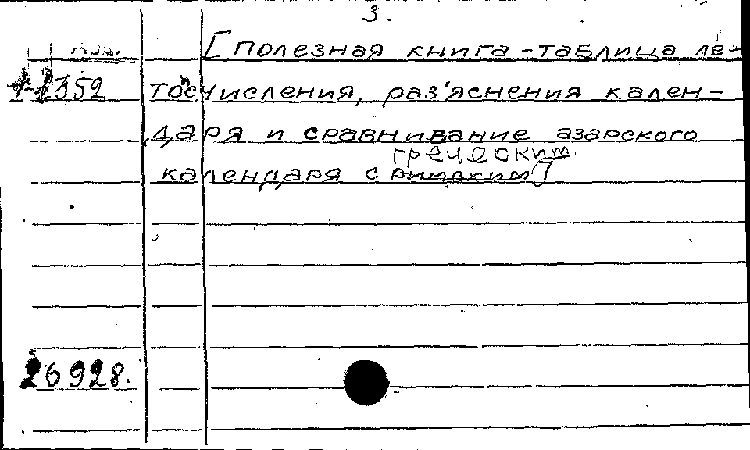 3.
[Полезная книга-таблица ле-
тосчисления, раз'яснения кален-
даря и сравнивание азарского
греческим.
календаря с римским]
26928.